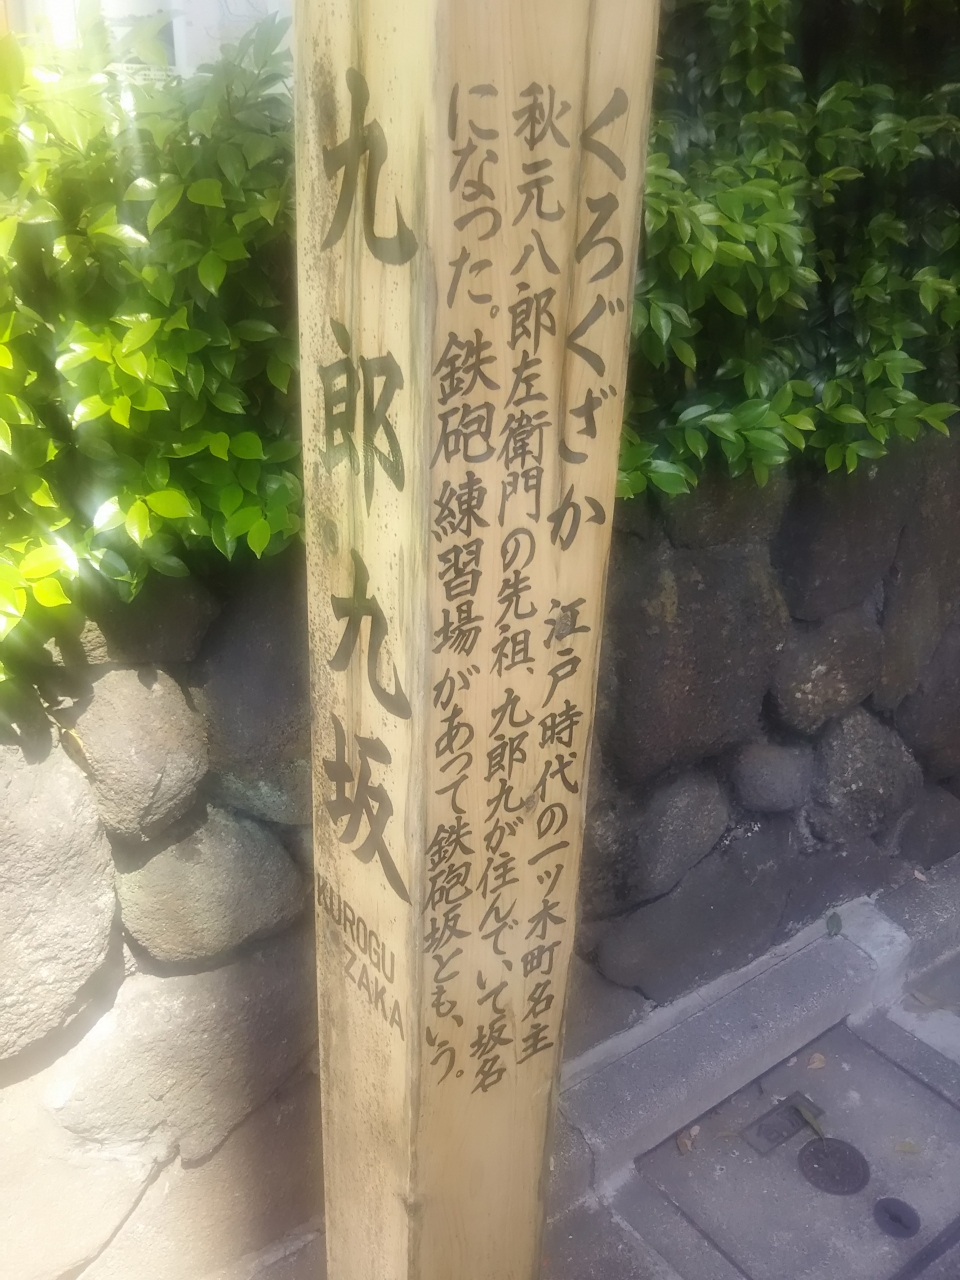 九郎九坂
KUROGU
ZAKA
くろぐざか 江戸時代の一ツ木町名主
秋元八郎左衛門の先祖、九郎九が住んでいて坂名
になった。鉄砲練習場があって鉄砲坂ともいう。